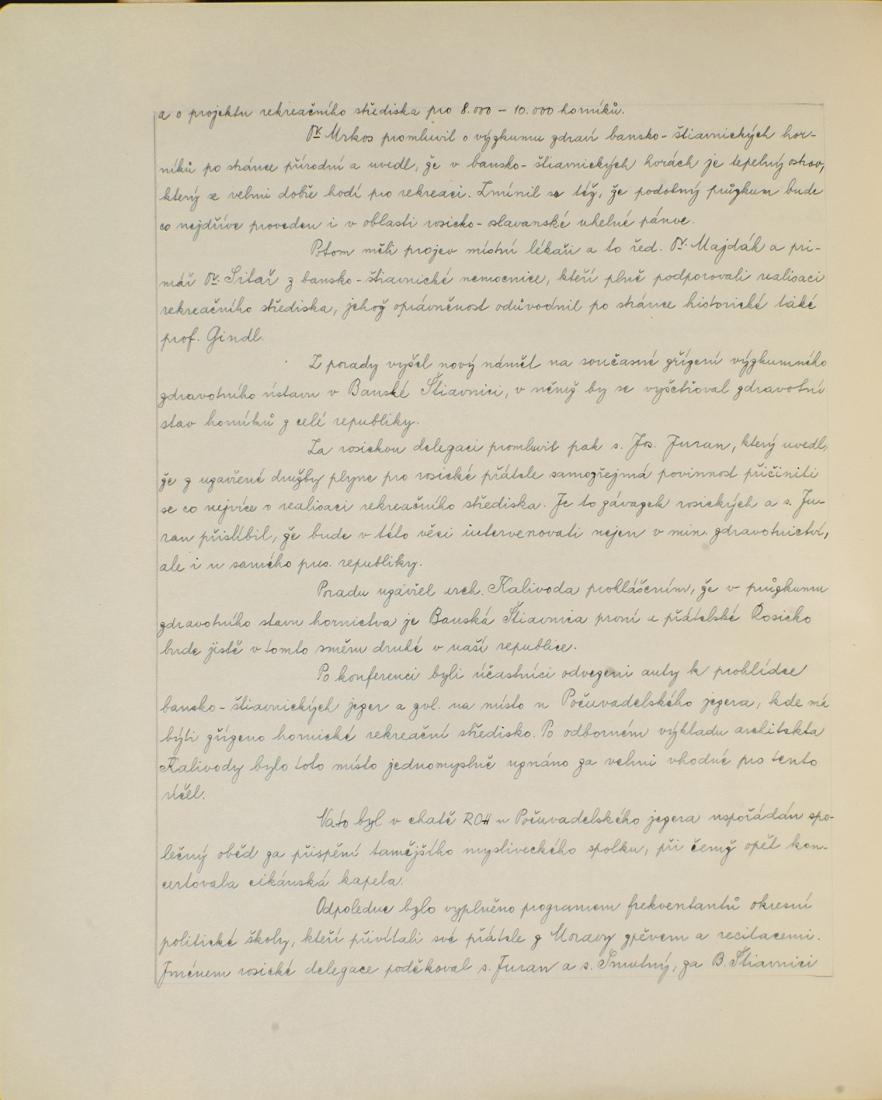 a o projektu rekreačního střediska pro 8.000 – 10.000 horníků.
Dr. Mrkos promluvil o výzkumu zdraví bansko-štiavnických hor-
níků po stránce přírodní a uvedl, že v bansko-štiavnických horách je tepelný ostrov,
který se velmi dobře hodí pro rekreaci. Zmínil se též, že podobný průzkum bude
co nejdříve proveden i v oblasti rosicko-oslavanské uhelné pánve.
Potom měli projev místní lékaři a to řed. Dr. Majdák a pri-
mář Dr. Sitař z bansko-štiavnické nemocnice, kteří plně podporovali realisaci
rekreačního střediska, jehož oprávněnost odůvodnil po stránce historické také
prof. Gindl.
Z porady vyšel nový námět na současné zřízení výzkumného
zdravotního ústavu v Banské Štiavnici, v němž by se vyšetřoval zdravotní
stav horníků z celé republiky.
Za rosickou delegaci promluvil pak s. Jos. Juran, který uvedl,
že z uzavřené družby plyne pro rosické přátele samozřejmá povinnost přičiniti
se co nejvíce o realisaci rekreačního střediska. Je to závazek rosických a s. Ju-
ran přislíbil, že bude v této věci intervenovati nejen v min. zdravotnictví,
ale i u samého pres. republiky.
Poradu uzavřel arch. Kalivoda prohlášením, že v průzkumu
zdravotního stavu hornictva je Banská Štiavnica první a přátelské Rosicko
bude jistě v tomto směru druhé v naší republice.
Po konferenci byli účastníci odvezeni auty k prohlídce
bansko-štiavnických jezer a zvl. na místo u Počuvadelského jezera, kde má
býti zřízeno hornické rekreační středisko. Po odborném výkladu architekta
Kalivody bylo toto místo jednomyslně uznáno za velmi vhodné pro tento
účel.
Nato byl v chatě ROH u Počuvadelského jezera uspořádán spo-
lečný oběd za přispění tamějšího mysliveckého spolku, při čemž opět kon-
certovala cikánská kapela.
Odpoledne bylo vyplněno programem frekventantů okresní
politické školy, kteří přivítali své přátele z Moravy zpěvem a recitacemi.
Jménem rosické delegace poděkoval s. Juran a s. Smutný, za B. Štiavnici